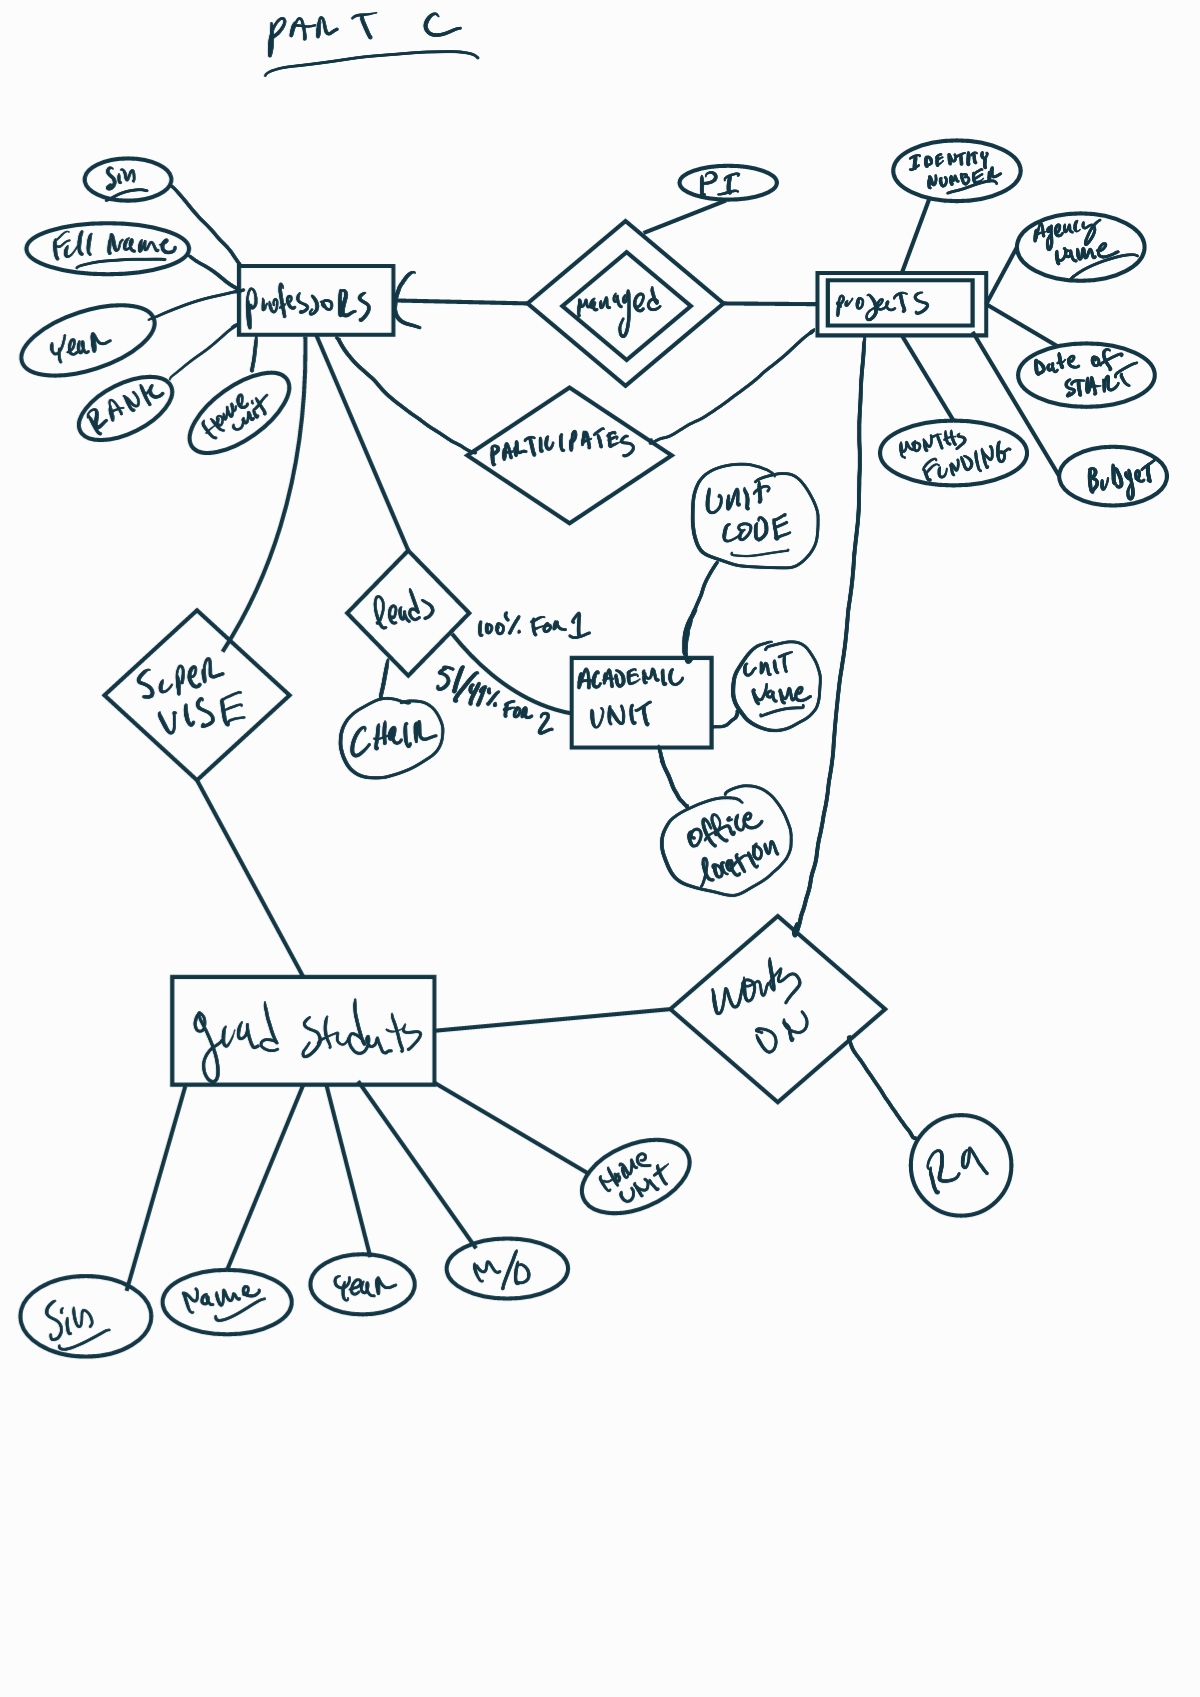 PART C
Sin
Full Name
Year
RANK
Home
unit
professoRS
PI
managed
IDENTITY
NUMBER
Agency
Name
projecTS
Date of
START
MONTHS
FUNDING
BuDgeT
PARTICIPATES
UNIT
CODE
leads
100% FOR 1
51/49% FOR 2
CHAIR
ACADEMIC
UNIT
UNIT
Name
office
location
SUPER
VISE
grad students
works
ON
RA
Home
UNIT
Sin
Name
Year
M/D